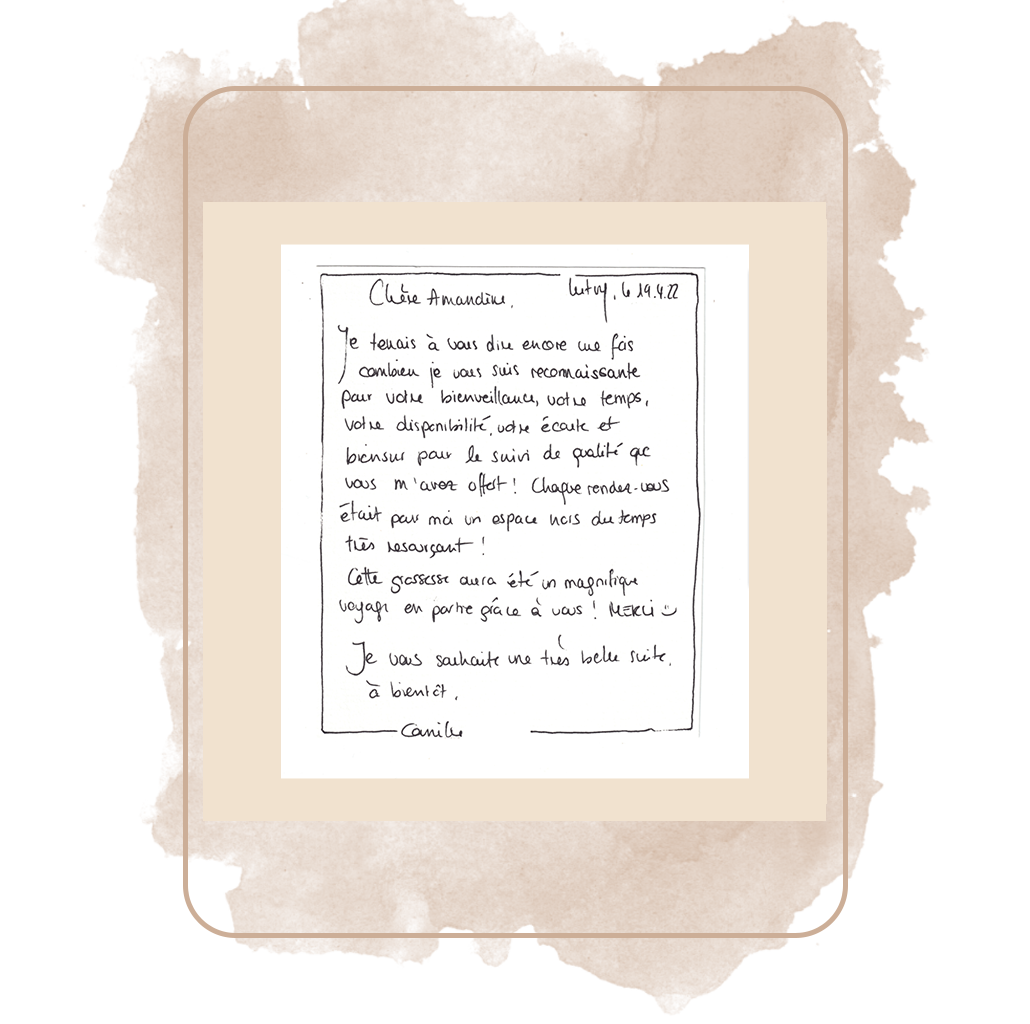 Chère Amandine,
Lutry, le 19.4.22
Je tenais à vous dire encore une fois
combien je vous suis reconnaissante
pour votre bienveillance, votre temps,
votre disponibilité, votre écoute et
biensur pour le suivi de qualité que
vous m'avez offert ! Chaque rendez-vous
était pour moi un espace hors du temps
très ressourçant !
Cette grossesse aura été un magnifique
voyage en partie grâce à vous ! MERCI
Je vous souhaite une très belle suite,
à bientôt,
Camille